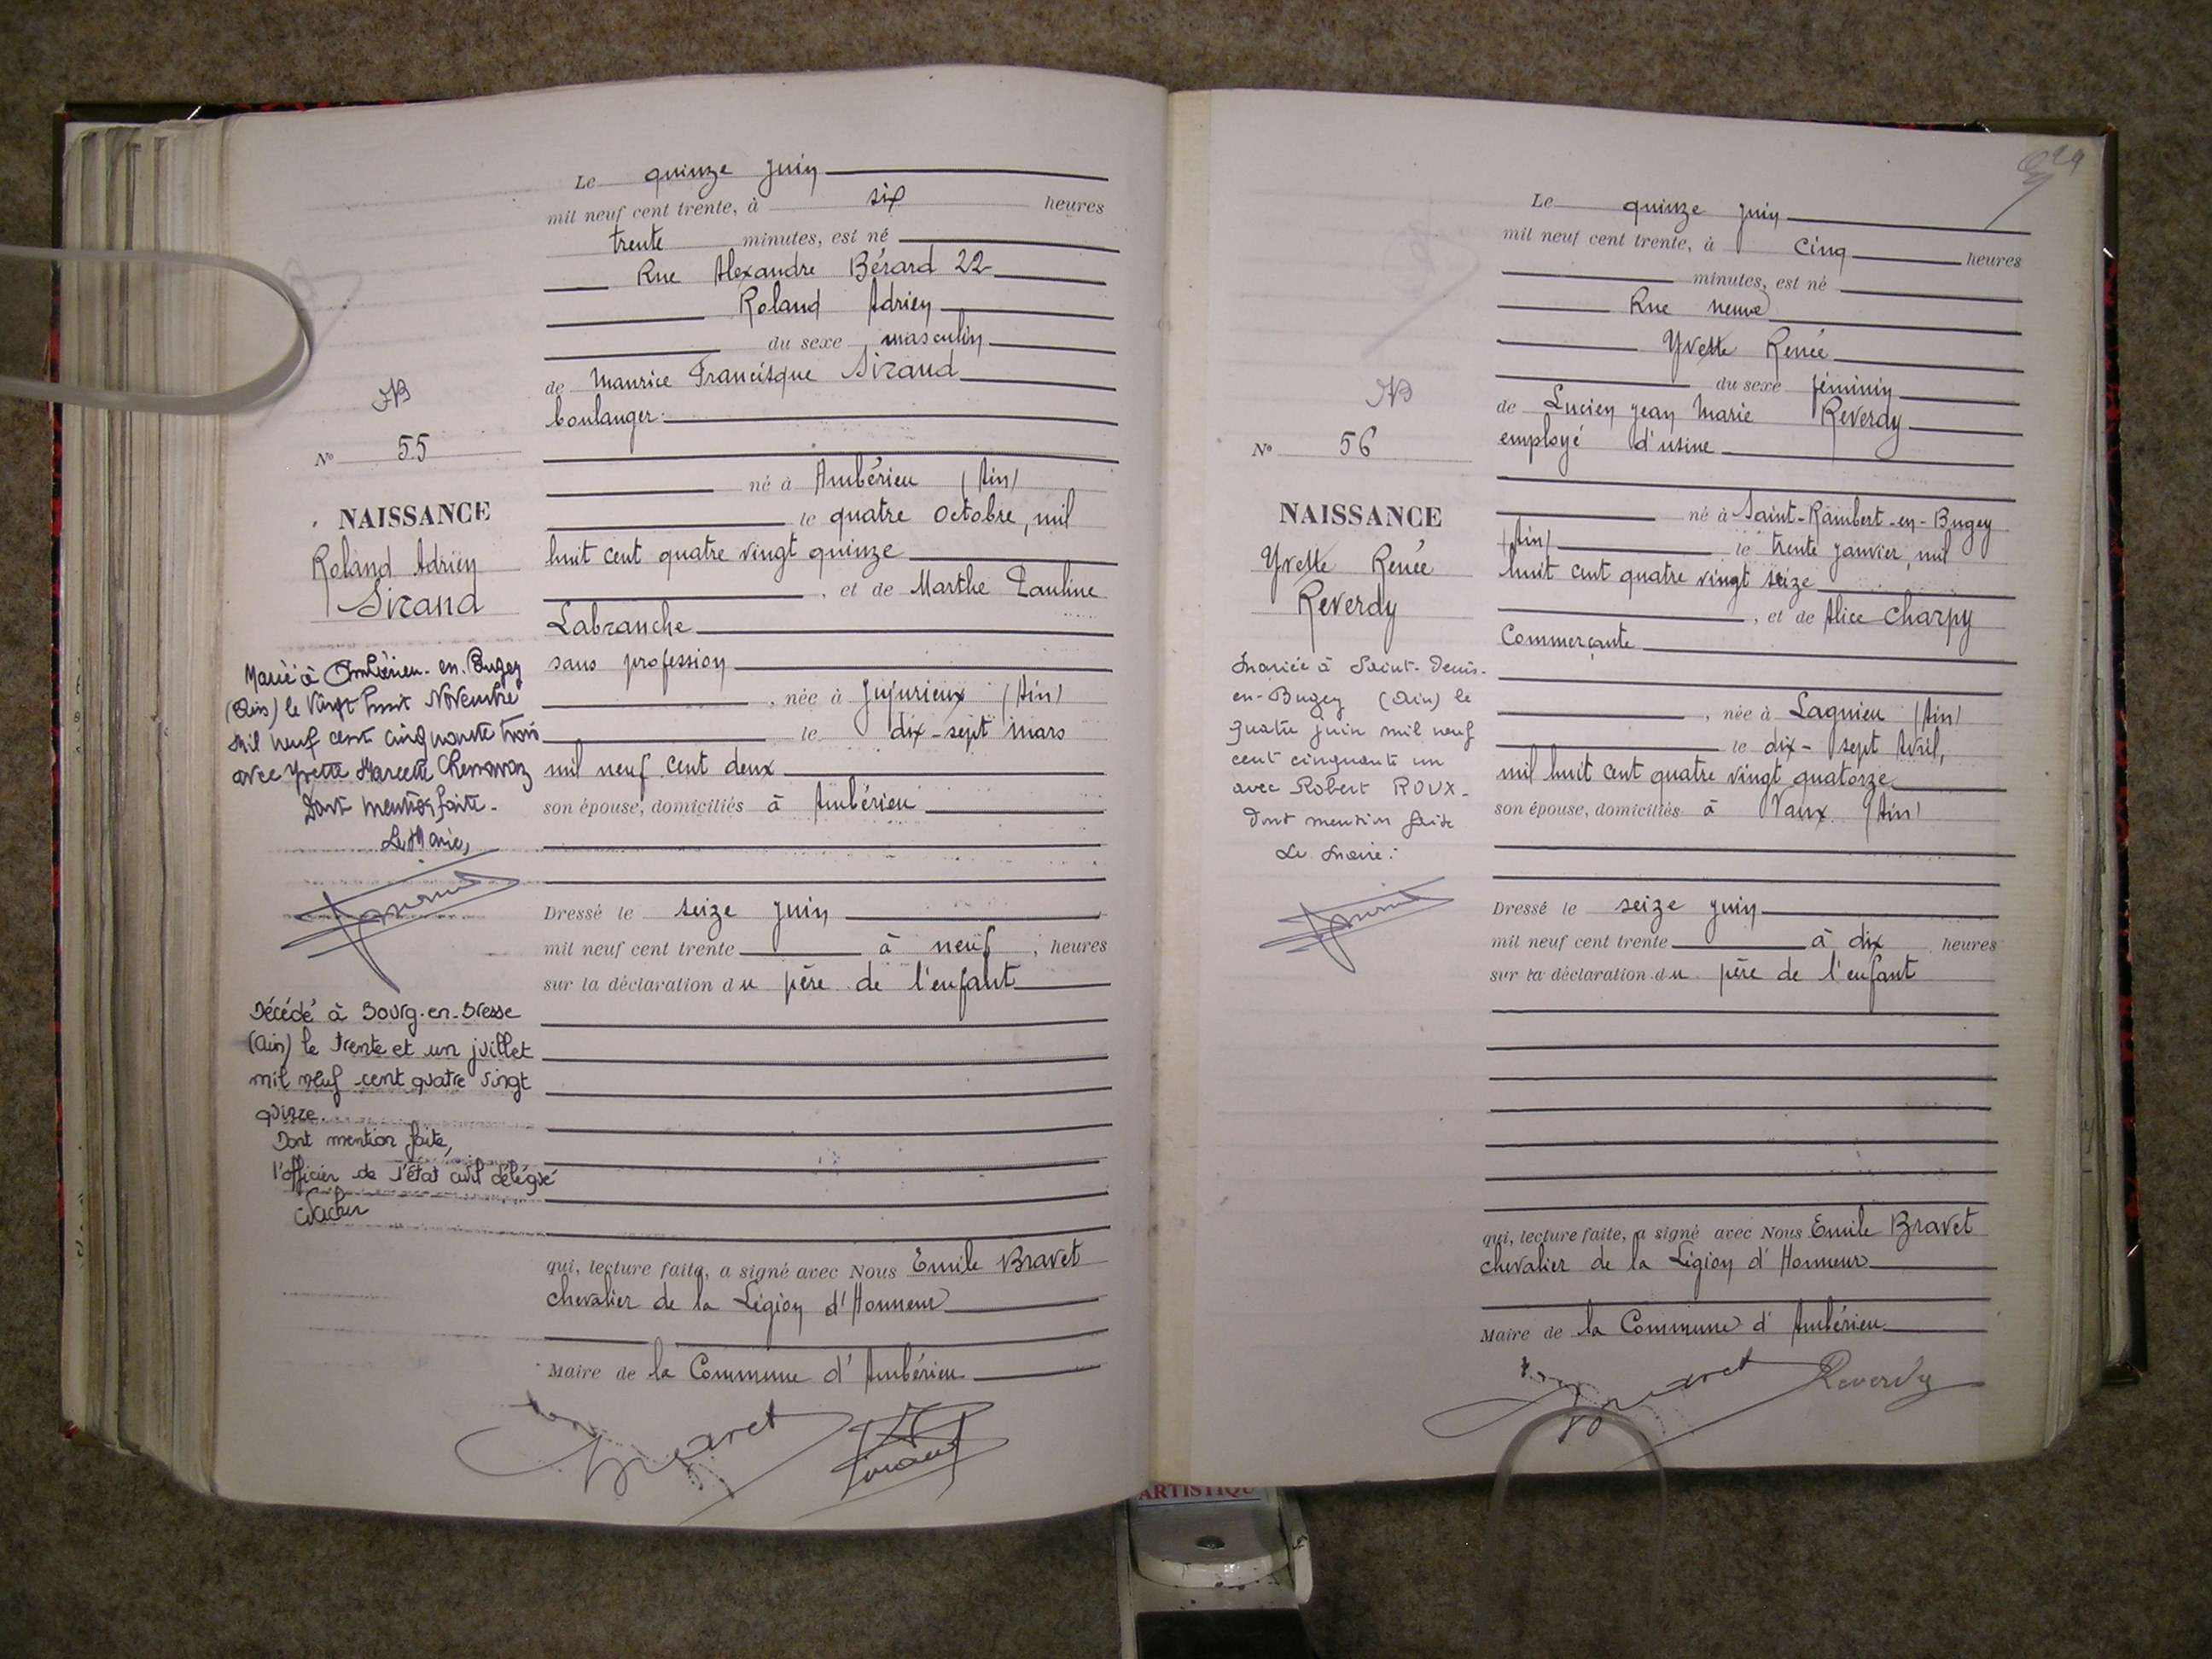 Le quinze juin
mil neuf cent trente, à six heures
trente minutes, est né
Rue Alexandre Bérard 22
Roland Adrien
du sexe masculin
de Maurice Francisque Sirand
boulanger
né à Ambérieu (Ain)
le quatre octobre, mil
huit cent quatre vingt quinze
, et de Marthe Pauline
Labranche
sans profession
, née à Jujurieux (Ain)
le dix-sept mars
mil neuf cent deux
son épouse, domiciliés à Ambérieu
Dressé le seize juin
mil neuf cent trente à neuf , heures
sur la déclaration du père de l'enfant
qui, lecture faite, a signé avec Nous Emile Bravet
chevalier de la Légion d'Honneur
Maire de la Commune d'Ambérieu
Bravet
Sirand
No 55
NAISSANCE
Roland Adrien
Sirand
Marié à Ambérieu-en-Bugey
(Ain) le Vingt huit Novembre
mil neuf cent cinquante trois
avec Yvette Marcelle
Dont mention faite.
Le Maire,
Décédé à Bourg-en-Bresse
(Ain) le trente et un juillet
mil neuf cent quatre vingt
quinze.
Dont mention faite,
l'officier de l'état civil délégué
Le quinze juin
mil neuf cent trente, à cinq heures
minutes, est né
Rue neuve
Yvette Renée
du sexe féminin
de Lucien Jean Marie Reverdy
employé d'usine
né à Saint-Rambert-en-Bugey
(Ain) le trente janvier, mil
huit cent quatre vingt seize
, et de Alice Charpy
Commerçante
, née à Lagnieu (Ain)
le dix-sept Avril,
mil huit cent quatre vingt quatorze
son épouse, domiciliés à Vaux (Ain)
Dressé le seize juin
mil neuf cent trente à dix , heures
sur la déclaration du père de l'enfant
qui, lecture faite, a signé avec Nous Emile Bravet
chevalier de la Légion d'Honneur
Maire de la Commune d'Ambérieu
Bravet Reverdy
No 56
NAISSANCE
Yvette Renée
Reverdy
Mariée à Saint-Denis-
en-Bugey (Ain) le
quatre juin mil neuf
cent cinquante un
avec Robert ROUX.
Dont mention faite
Le Maire:
ARTISTIQU